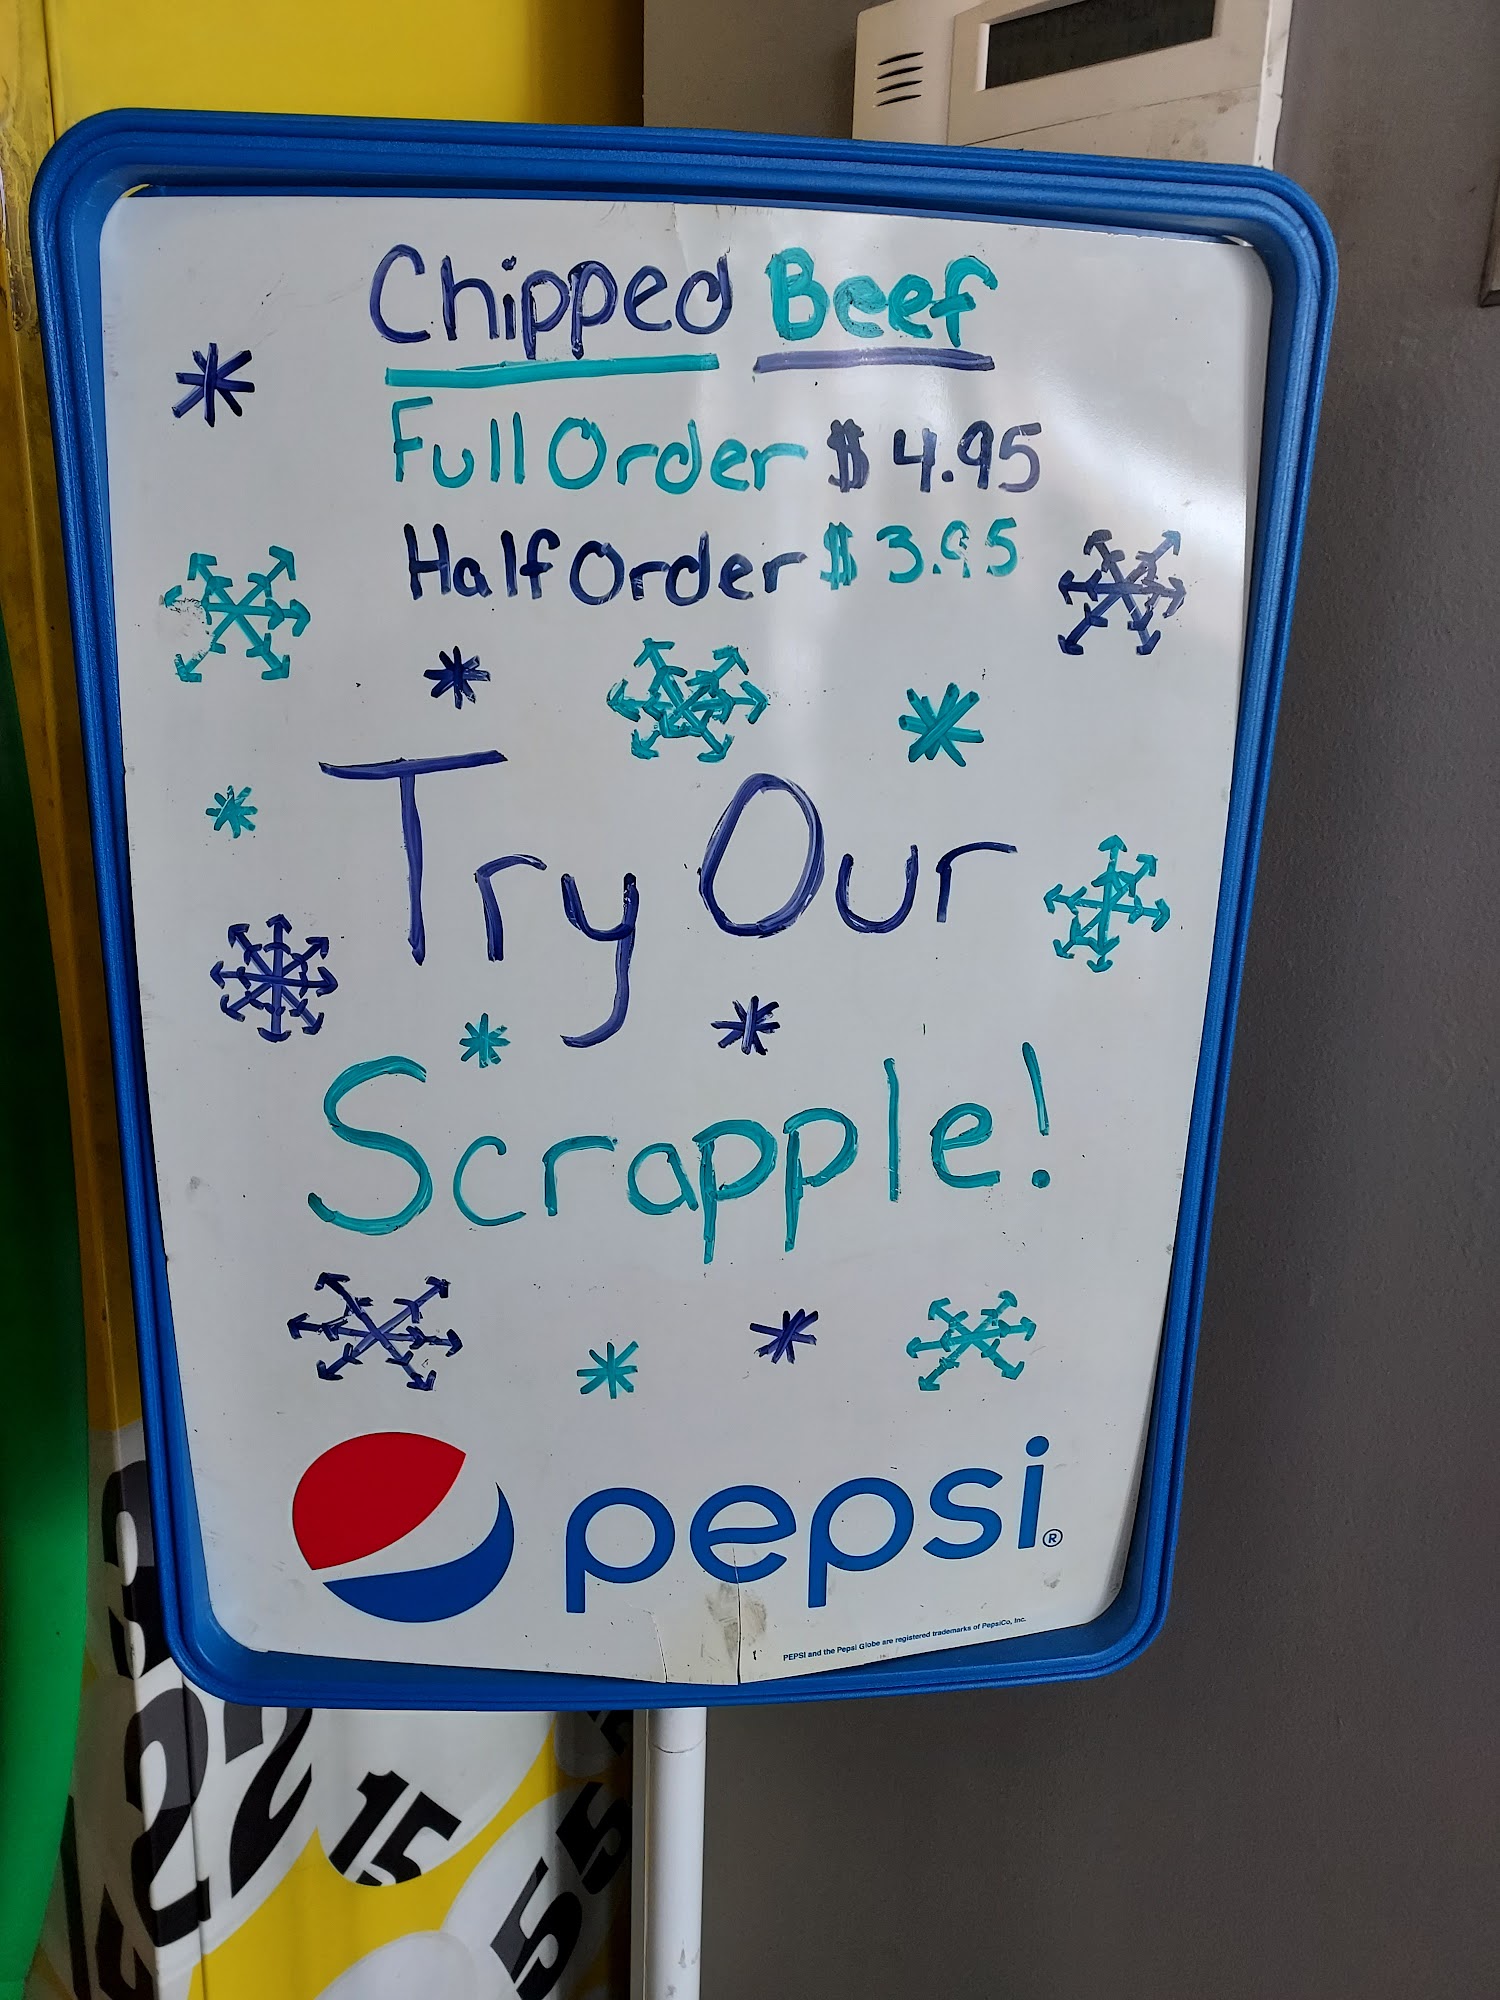 Chipped Beef
Full Order $4.95
Half Order $3.95
Try Our
Scrapple!
pepsi®
PEPSI and the Pepsi Globe are registered trademarks of PepsiCo, Inc.
22
15
55